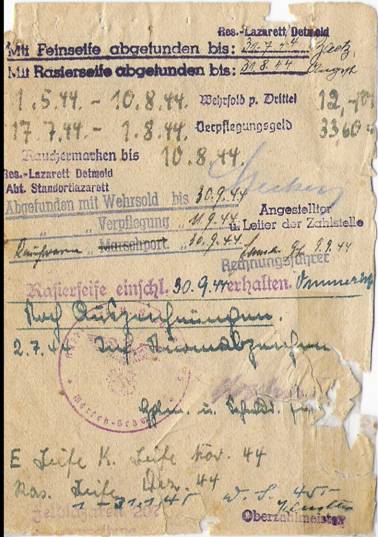 Res.-Lazarett Detmold
Mit Feinseife abgefunden bis: 30.7.44
Mit Rasierseife abgefunden bis: 31.8.44
1.5.44. - 10.8.44. Wehrsold p. Drittel 12,-
17.7.44 - 1.8.44. Verpflegungsgeld 33,60
Rauchermarken bis 10.8.44.
Res.-Lazarett Detmold
Abt. Standortlazarett
Abgefunden mit Wehrsold bis 30.9.44
" " Verpflegung " 11.9.44
Angestellter
u. Leiter der Zahlstelle
" Marschport. " 30.9.44 9.9.44
Rechnungsführer
Rasierseife einschl. 30.9.44 erhalten.
Noch Auszeichnungen.
2.7.44 Inf Sturmabzeichen
E Seife K. Seife Nov. 44
Ras. Seife Dez. 44
1 - 31.1.45 W. S. 45.-
Feldlazarett
Oberzahlmeister